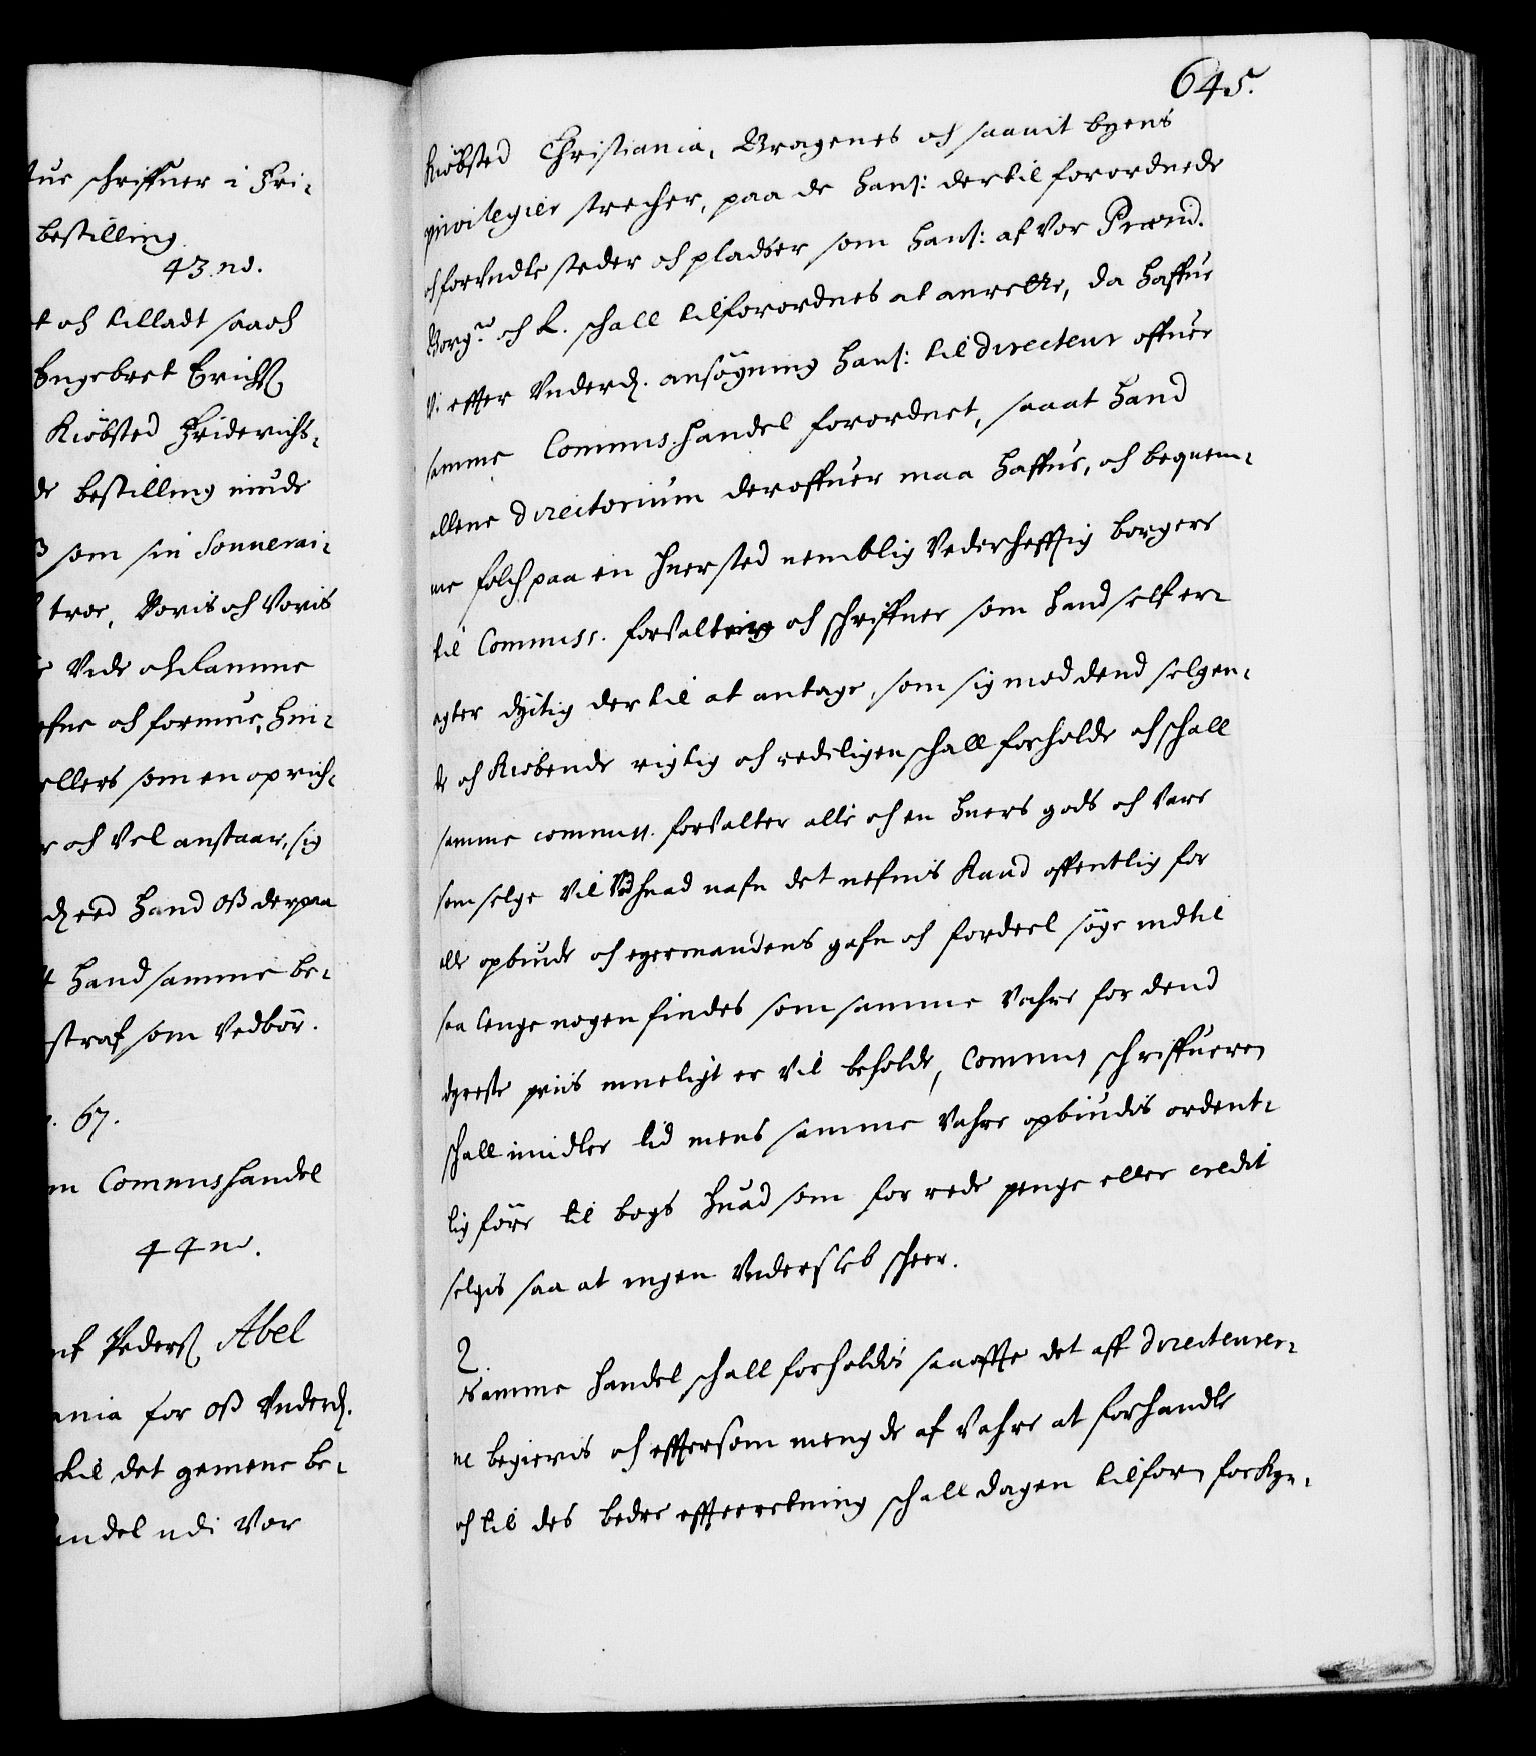 tue schriffuer i Fri-
bestilling.
43. nd.
t och tilladt saaoch
Engebret Erichs
Kiöbsted Friderichs-
de bestilling mude
som sin Souuerai-
troe, Voris och Voris
Vide och ramme
efne och formue, hui-
ellers som en oprich-
r och Vel anstaar, sig
eed hand oß derpaa
t hand samme be-
straf som Vedbör.
. 67.
m Commishandel
44 nd.
nt Peders Abel
ania for oß Underd.
til det gemene be-
andel udi Vor
645.
Kiöbsted Christiania, Bragenes och saavit byens
privilegier strecher, paa de hans: dertil forordnede
och forundte steder och pladser som hans: af Vor Præsid.
Borgm. och R. schall tilforordnes at anrette, da haffue
Vi effter Underd. ansögning hans: til Directeur offuer
samme Commis. handel forordnet, saaat hand
allene Directorium deroffuer maa haffue, och beqvem-
me folch paa en huer sted nemblig Vederhefftig borgere
til Commiss. forvaltere och schriffuer som hand self er-
agter dyitig dertil at antage, som sig mod dend selgen-
de och Kiöbende rigtig och redeligen schall forholde och schall
samme commiss. forvalter alle och en huers gods och Vare
som selge Vil Ved huad nafn det nefnis Kand offentlig for
alle opbiude och egermandens gafn och fordeel söge indtil
saa lenge nogen findes som samme Vahre for dend
dyreste priis mueligt er Vil beholde, Commis schriffueren
schall imidler tid mens samme Vahre opbiudis ordent-
lig före til bogs huad som for rede penge eller credit
selgis saa at ingen Undersleb scheer.
2.
Samme handel schall forholdis saaofte det aff Directeure-
ne begieris och effter som mengde af Vahre at forhandle
och til des bedre effterretning schall dagen tilforn forkyn-